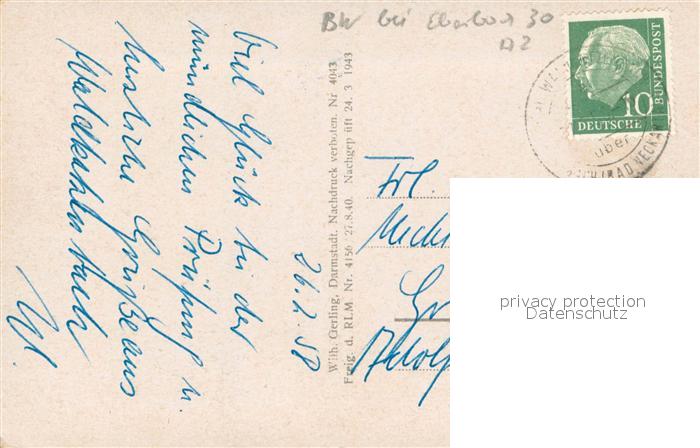 BW bei Eberbach 30
A2
Viel Glück bei der
mündlichen Prüfung u.
herzliche Grüße aus
Waldkatzenbach
W.
26.2.58
Wilh. Gerling, Darmstadt. Nachdruck verboten. Nr 4043
Freig. d. RLM. Nr. 4156 27.8.40. Nachgep üft 24. 3 1943
10
DEUTSCHE
BUNDESPOST
über
NECKAR
Frl.
Adolf
privacy protection
Datenschutz